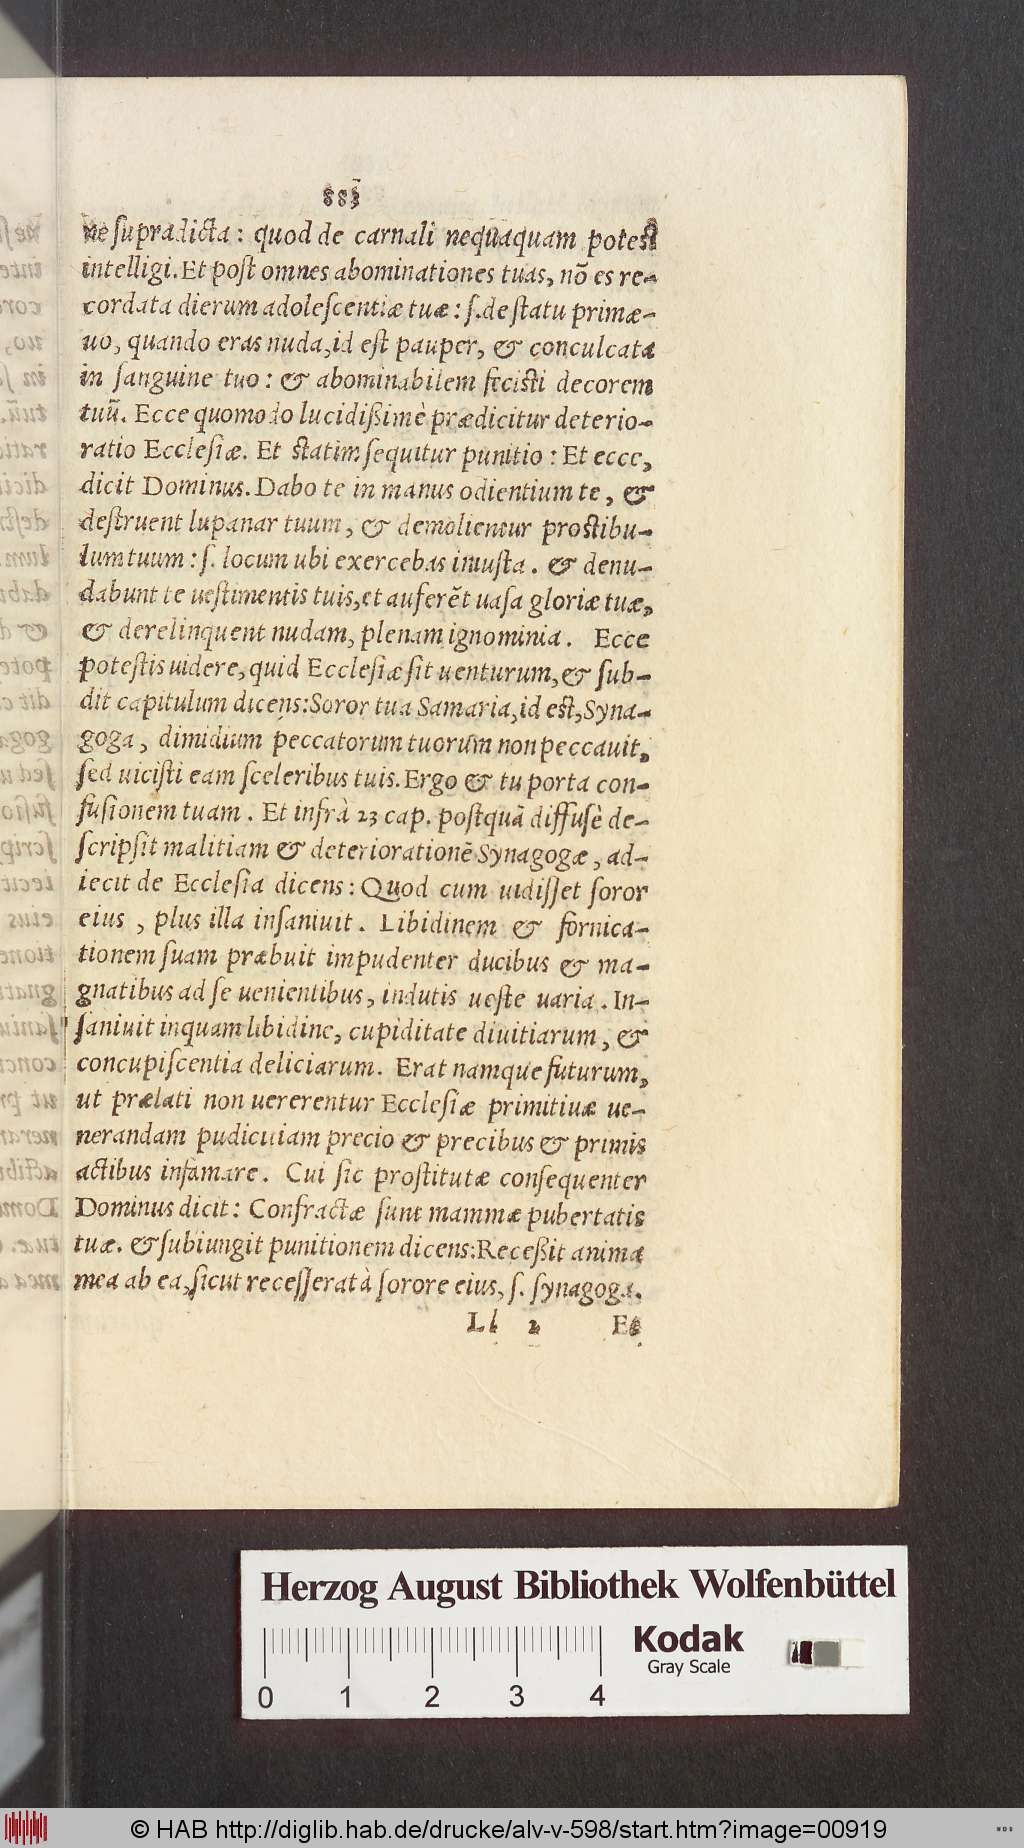 883
ne supradicta: quod de carnali nequaquam potest
intelligi. Et post omnes abominationes tuas, nõ es re-
cordata dierum adolescentiæ tuæ: s. de statu primæ-
uo, quando eras nuda, id est pauper, & conculcata
in sanguine tuo: & abominabilem fecisti decorem
tuũ. Ecce quomodo lucidißimè prædicitur deterio-
ratio Ecclesiæ. Et statim sequitur punitio: Et ecce,
dicit Dominus. Dabo te in manus odientium te, &
destruent lupanar tuum, & demolientur prostibu-
lum tuum: s. locum ubi exercebas iniusta. & denu-
dabunt te uestimentis tuis, et auferẽt uasa gloriæ tuæ,
& derelinquent nudam, plenam ignominia. Ecce
potestis uidere, quid Ecclesiæ sit uenturum, & sub-
dit capitulum dicens: Soror tua Samaria, id est, Syna-
goga, dimidium peccatorum tuorum non peccauit,
sed uicisti eam sceleribus tuis. Ergo & tu porta con-
fusionem tuam. Et infrà 23 cap. postquã diffusè de-
scripsit malitiam & deterioratione͂ Synagogæ, ad-
iecit de Ecclesia dicens: Quod cum uidisset soror
eius, plus illa insaniuit. Libidinem & fornica-
tionem suam præbuit impudenter ducibus & ma-
gnatibus ad se uenientibus, indutis ueste uaria. In-
saniuit inquam libidine, cupiditate diuitiarum, &
concupiscentia deliciarum. Erat namque futurum,
ut prælati non uererentur Ecclesiæ primitiuæ ue-
nerandam pudicitiam precio & precibus & primis
actibus infamare. Cui sic prostitutæ consequenter
Dominus dicit: Confractæ sunt mammæ pubertatis
tuæ. & subiungit punitionem dicens: Receßit anima
mea ab ea, sicut recesserat à sorore eius, s. synagoga.
Ll 2 Et
Herzog August Bibliothek Wolfenbüttel
Kodak
Gray Scale
0 1 2 3 4
© HAB http://diglib.hab.de/drucke/alv-v-598/start.htm?image=00919